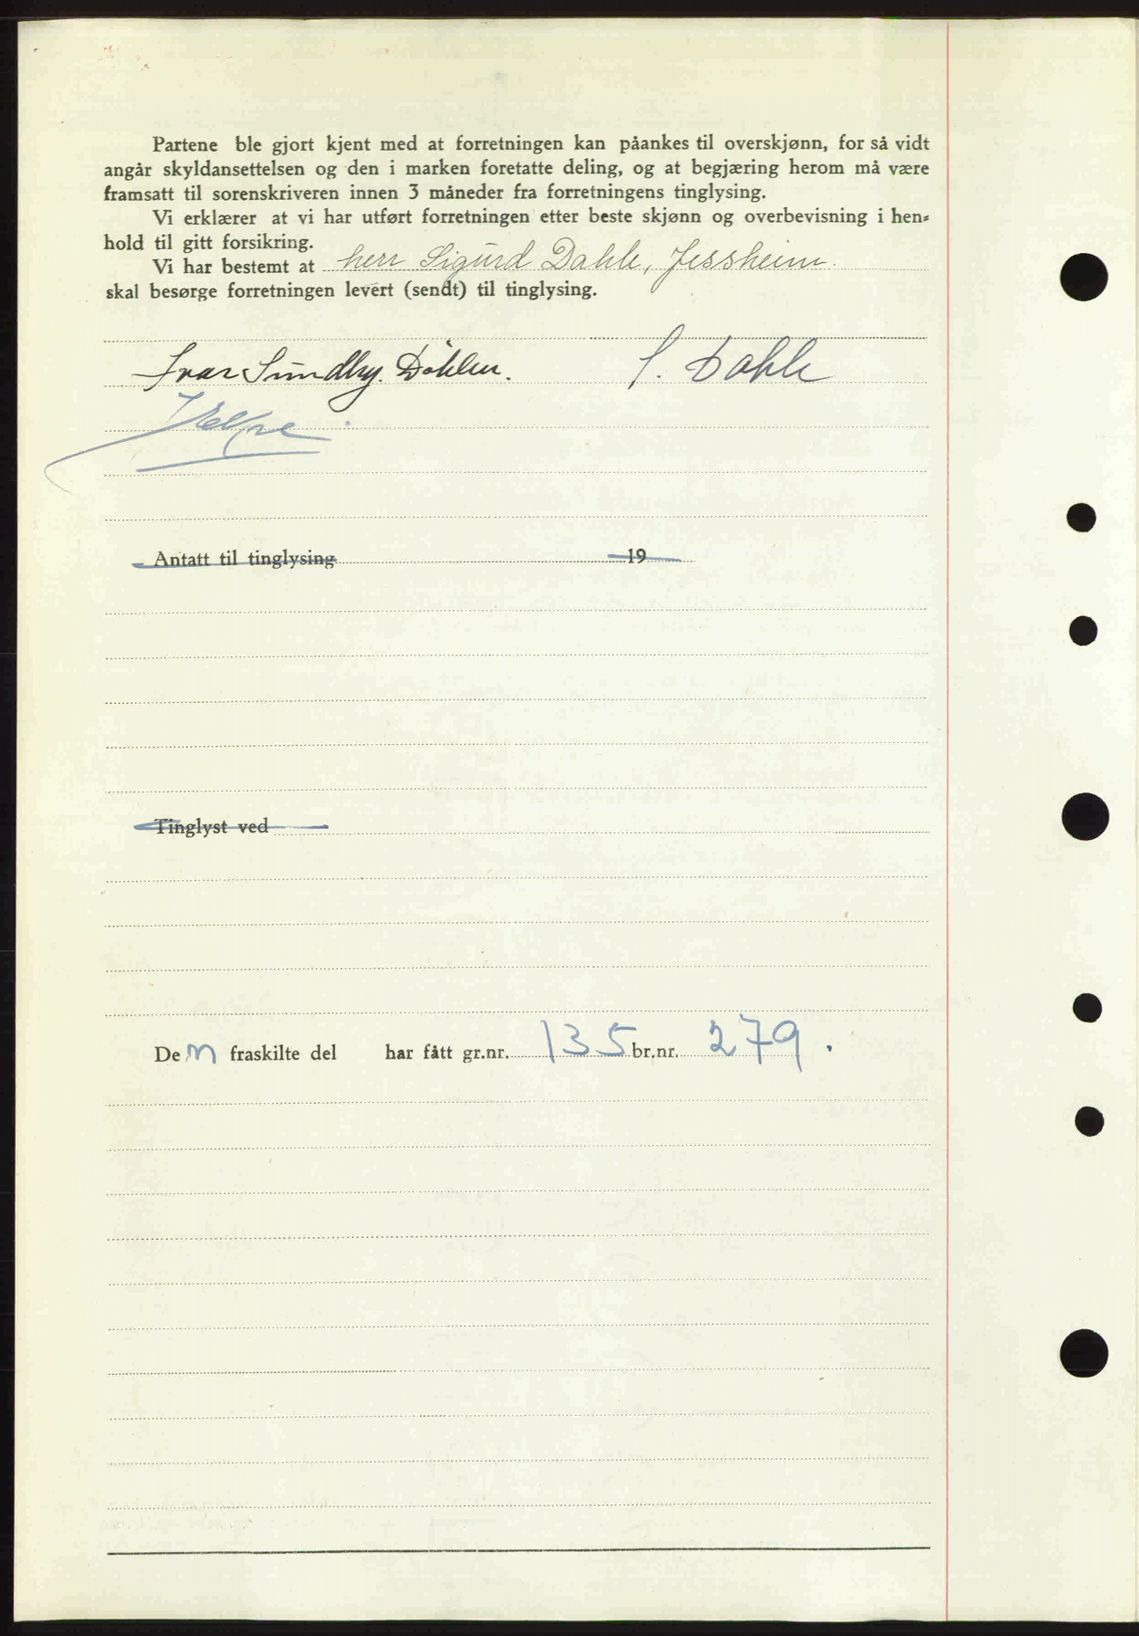 Partene ble gjort kjent med at forretningen kan påankes til overskjønn, for så vidt
angår skyldansettelsen og den i marken foretatte deling, og at begjæring herom må være
framsatt til sorenskriveren innen 3 måneder fra forretningens tinglysing.
Vi erklærer at vi har utført forretningen etter beste skjønn og overbevisning i hen-
hold til gitt forsikring.
Vi har bestemt at herr Sigurd Dahle, Jessheim.
skal besørge forretningen levert (sendt) til tinglysing.
Ivar Sundby. Døhlen. S. Dahle
Antatt til tinglysing 19
Tinglyst ved
Den fraskilte del har fått gr.nr. 135 br.nr. 279.